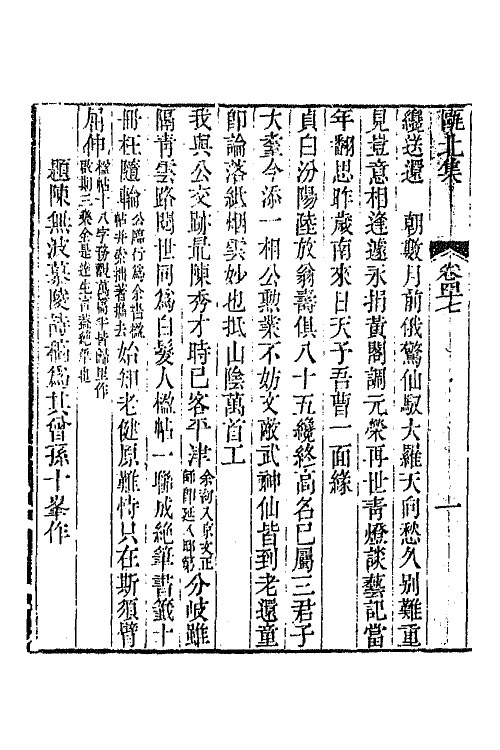 甌北集 卷四十七 一
纔送還 朝數月前俄驚仙馭大羅天向愁久別難重
見豈意相逢遽永捐黃閣調元榮再世靑燈談藝記當
年翻思昨歲南來日天子吾曹一面緣
貞白汾陽陸放翁壽俱八十五纔終高名已屬三君子
大耋今添一相公勲業不妨文敵武神仙皆到老還童
卽論落紙烟雲妙也抵山陰萬首工
我與公交跡最陳秀才時已客平津余初入京文正師卽延入邸第分岐雖
隔靑雲路閱世同爲白髮人楹帖一聯成絕筆書籤十
冊枉隨輪公臨行爲余書楹帖幷索拙著攜去始知老健原難恃只在斯須臂
屈伸楹帖十八字
題陳無波慕陵詩稿爲其曾孫十峯作